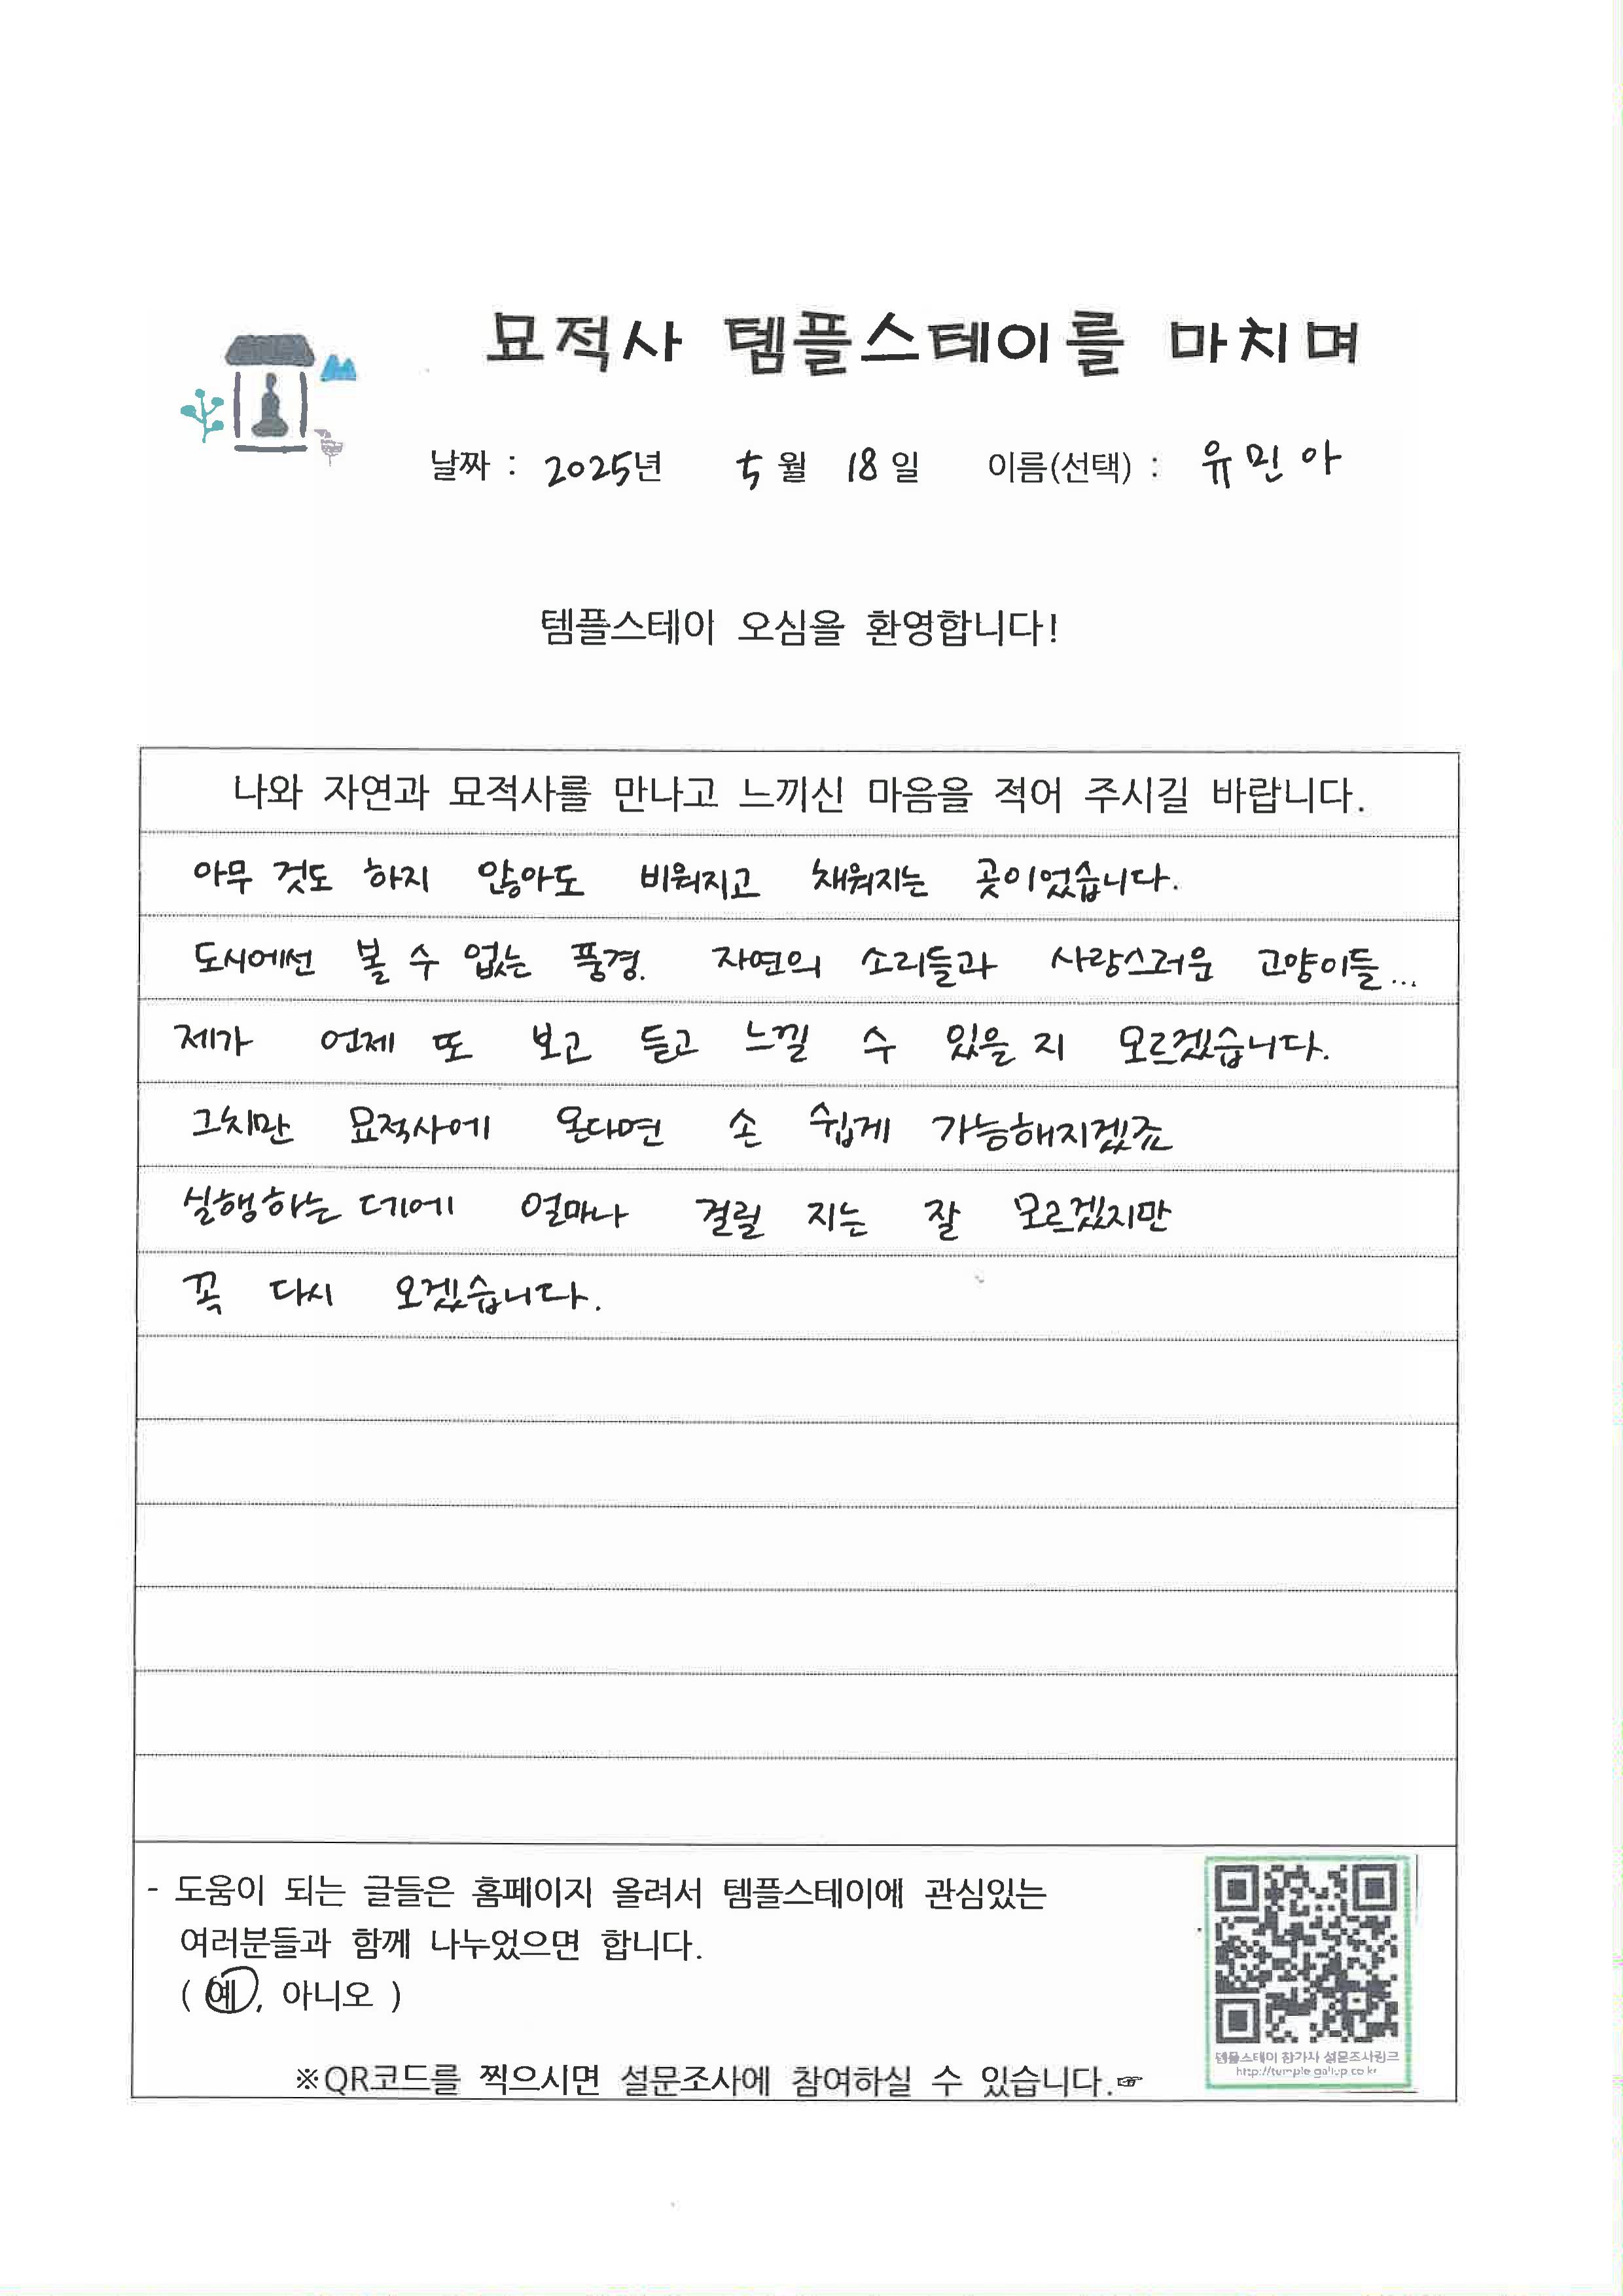 묘적사 템플스테이를 마치며
날짜 : 2025년 5월 18일 이름(선택) : 유민아
템플스테이 오심을 환영합니다!
나와 자연과 묘적사를 만나고 느끼신 마음을 적어 주시길 바랍니다.
아무 것도 하지 않아도 비워지고 채워지는 곳이었습니다.
도시에선 볼 수 없는 풍경. 자연의 소리들과 사랑스러운 고양이들...
제가 언제 또 보고 듣고 느낄 수 있을 지 모르겠습니다.
그치만 묘적사에 온다면 손 쉽게 가능해지겠죠
실행하는 데에 얼마나 걸릴 지는 잘 모르겠지만
꼭 다시 오겠습니다.
- 도움이 되는 글들은 홈페이지 올려서 템플스테이에 관심있는
여러분들과 함께 나누었으면 합니다.
( 예, 아니오 )
※QR코드를 찍으시면 설문조사에 참여하실 수 있습니다.☞
템플스테이 참가자 설문조사링크
http://temple.gallup.co.kr